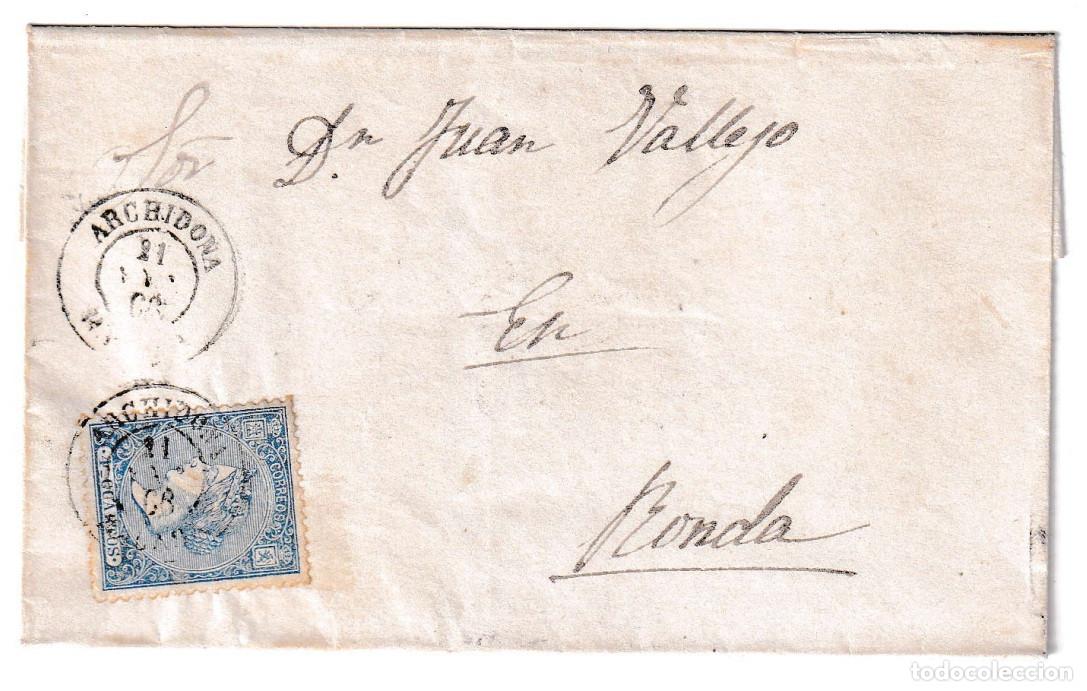 Sor Dn Juan Vallejo
En
Ronda
ARCHIDONA
21
68
ARCHIDONA
21
68
CORREOS
CUARTOS
todocoleccion